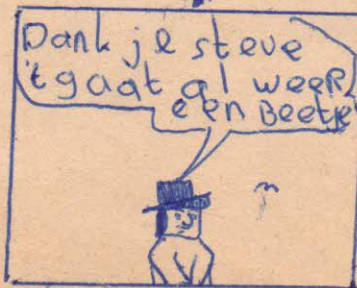 Dank je steve
't gaat al weeR,
een Beetje